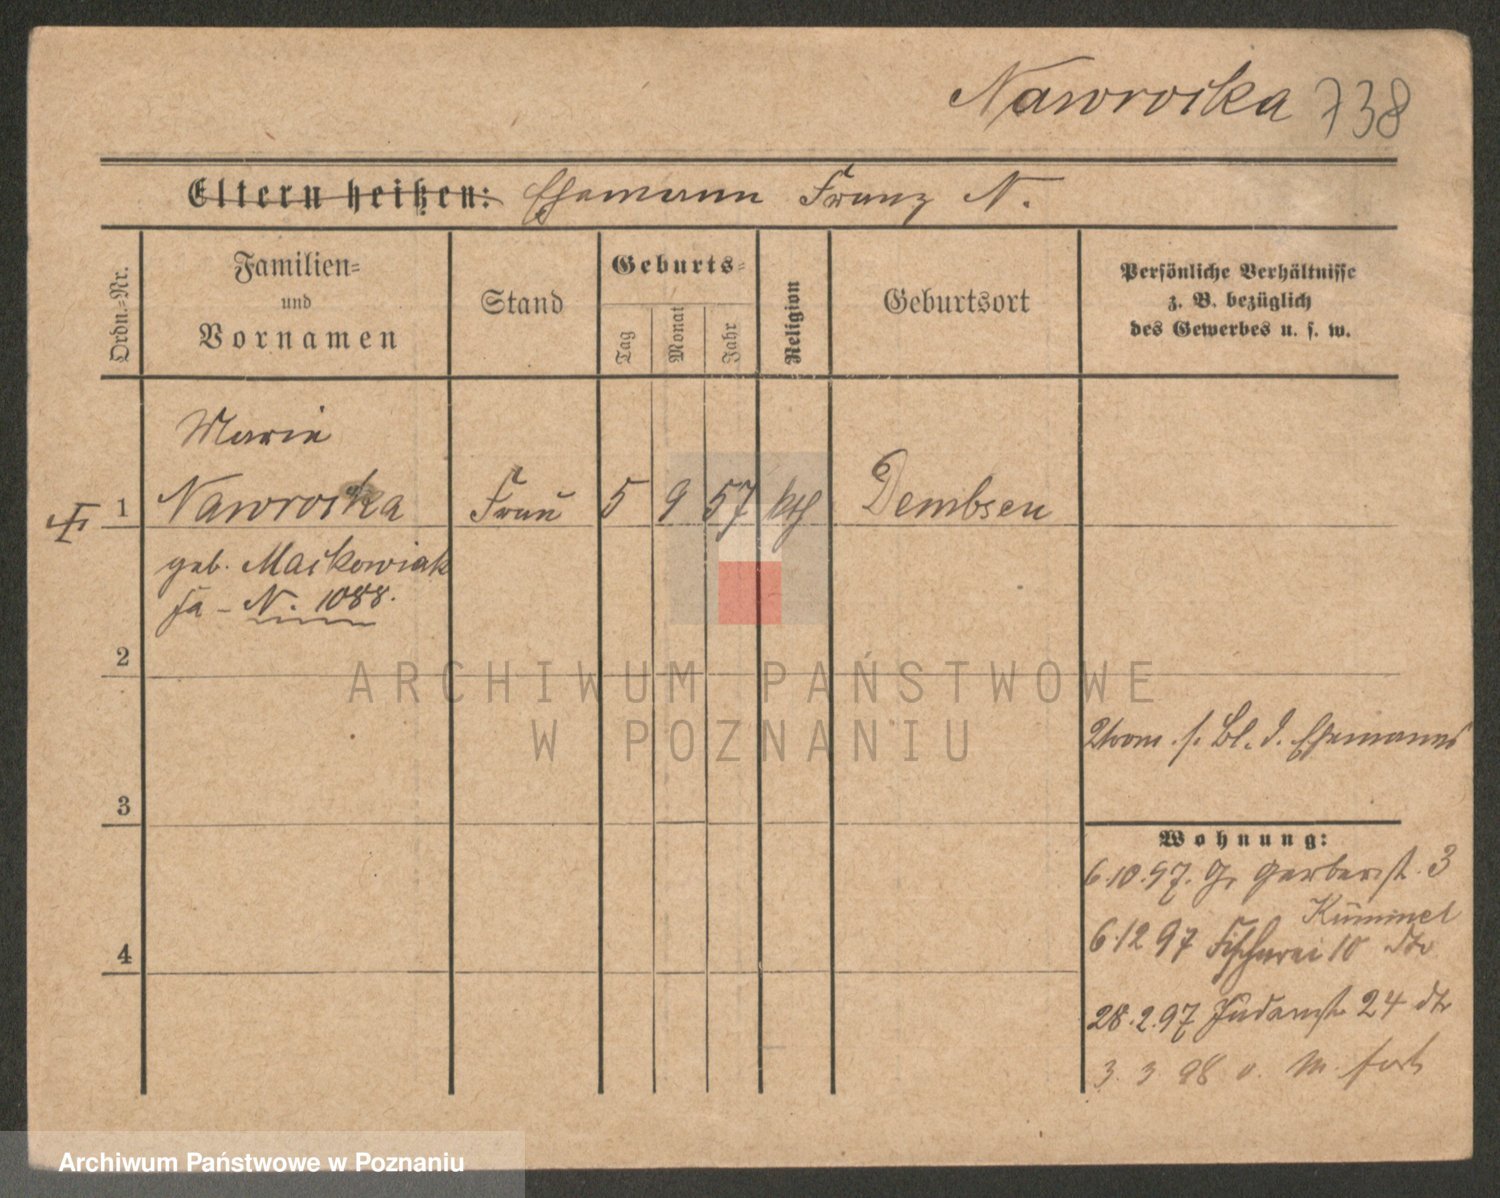 Nawrocka 738
Eltern heißen: Ehemann Franz N.
Ordn.-Nr.
Familien-
und
Vornamen
Stand
Geburts-
Tag
Monat
Jahr
Religion
Geburtsort
Persönliche Verhältnisse
z. B. bezüglich
des Gewerbes u. s. w.
Marie
1 Nawrocka Frau 5 9 57 kth Dembsen
geb. Maikowiak
N. 1088.
2
ARCHIWUM PAŃSTWOWE
W POZNANIU
s. Bl. d. Ehemanns
3
Wohnung:
6.10.97. Gr Gerberst. 3
Kümmel
6.12 97 Fischerei 10
4
28.2.97 Judenstr 24
3. 3 98 v. M. fort
Archiwum Państwowe w Poznaniu